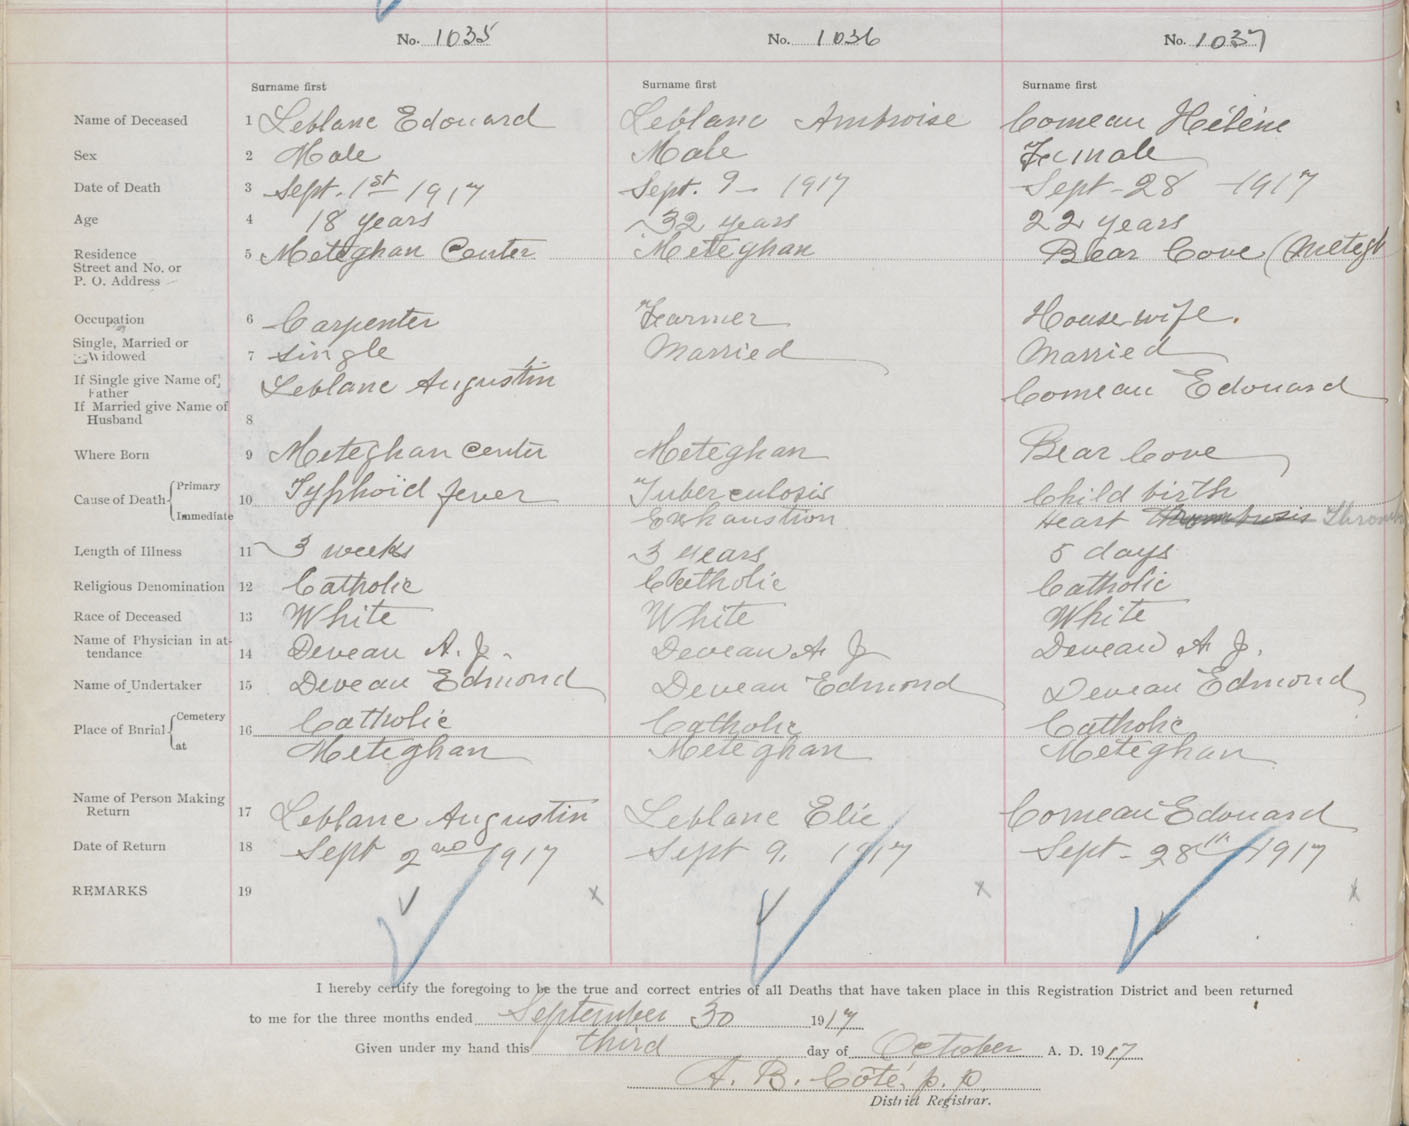 No. 1035 No. 1036 No. 1037
Surname first Surname first Surname first
Name of Deceased 1 Leblanc Edouard Leblanc Ambroise Comeau Hélène
Sex 2 Male Male Female
Date of Death 3 Sept. 1st 1917 Sept. 9 - 1917 Sept - 28 - 1917
Age 4 18 years 32 years 22 years
Residence
Street and No. or
P. O. Address
5 Meteghan Center Meteghan Bear Cove (Metegh
Occupation 6 Carpenter Farmer House wife.
Single, Married or
Widowed
7 Single Married Married
If Single give Name of
Father
Leblanc Augustin Comeau Edouard
If Married give Name of
Husband
8
Where Born 9 Meteghan Center Meteghan Bear Cove
Cause of Death { Primary 10 Typhoid fever Tuberculosis Child birth
Immediate Exhaustion Heart thrombosis Throm
Length of Illness 11 3 weeks 3 years 5 days
Religious Denomination 12 Catholic Catholic Catholic
Race of Deceased 13 White White White
Name of Physician in at-
tendance
14 Deveau A. J. Deveau A. J Deveau A. J.
Name of Undertaker 15 Deveau Edmond Deveau Edmond Deveau Edmond
Place of Burial { Cemetery 16 Catholic Catholic Catholic
at Meteghan Meteghan Meteghan
Name of Person Making
Return
17 Leblanc Augustin Leblanc Elie Comeau Edouard
Date of Return 18 Sept 2nd 1917 Sept 9, 1917 Sept - 28th 1917
REMARKS 19
I hereby certify the foregoing to be the true and correct entries of all Deaths that have taken place in this Registration District and been returned
to me for the three months ended September 30 1917
Given under my hand this third day of October A. D. 1917
A. B. Côté, p. p.
District Registrar.